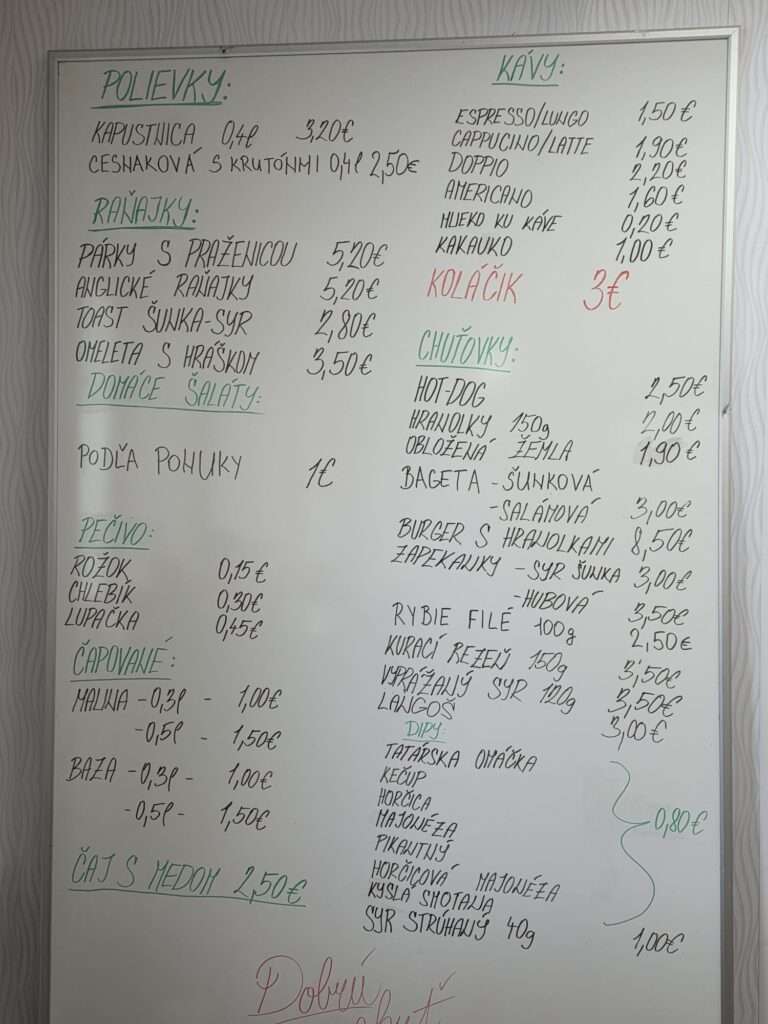 POLIEVKY:
KAPUSTNICA 0,4l 3,20€
CESNAKOVÁ S KRUTÓNMI 0,4l 2,50€
RAŇAJKY:
PÁRKY S PRAŽENICOU 5,20€
ANGLICKÉ RAŇAJKY 5,20€
TOAST ŠUNKA-SYR 2,80€
OMELETA S HRÁŠKOM 3,50€
DOMÁCE ŠALÁTY:
PODĽA PONUKY 1€
PEČIVO:
ROŽOK 0,15€
CHLEBÍK 0,30€
LUPAČKA 0,45€
ČAPOVANÉ:
MALINA - 0,3l - 1,00€
- 0,5l - 1,50€
BAZA - 0,3l - 1,00€
- 0,5l - 1,50€
ČAJ S MEDOM 2,50€
KÁVY:
ESPRESSO/LUNGO 1,50€
CAPPUCINO/LATTE 1,90€
DOPPIO 2,20€
AMERICANO 1,60€
MLIEKO KU KÁVE 0,20€
KAKAUKO 1,00€
KOLÁČIK 3€
CHUŤOVKY:
HOT-DOG 2,50€
HRANOLKY 150g 2,00€
OBLOŽENÁ ŽEMLA 1,90€
BAGETA - ŠUNKOVÁ
- SALÁMOVÁ 3,00€
BURGER S HRANOLKAMI 8,50€
ZAPEKANKY - SYR ŠUNKA 3,00€
- HUBOVÁ 3,50€
RYBIE FILÉ 100g 2,50€
KURACÍ REZEŇ 150g 3,50€
VYPRÁŽANÝ SYR 120g 3,50€
LANGOŠ 3,00€
DIPY:
TATÁRSKA OMÁČKA
KEČUP
HORČICA
MAJONÉZA
PIKANTNÝ
HORČICOVÁ MAJONÉZA
KYSLÁ SMOTANA
0,80€
SYR STRÚHANÝ 40g 1,00€
Dobrú
chuť